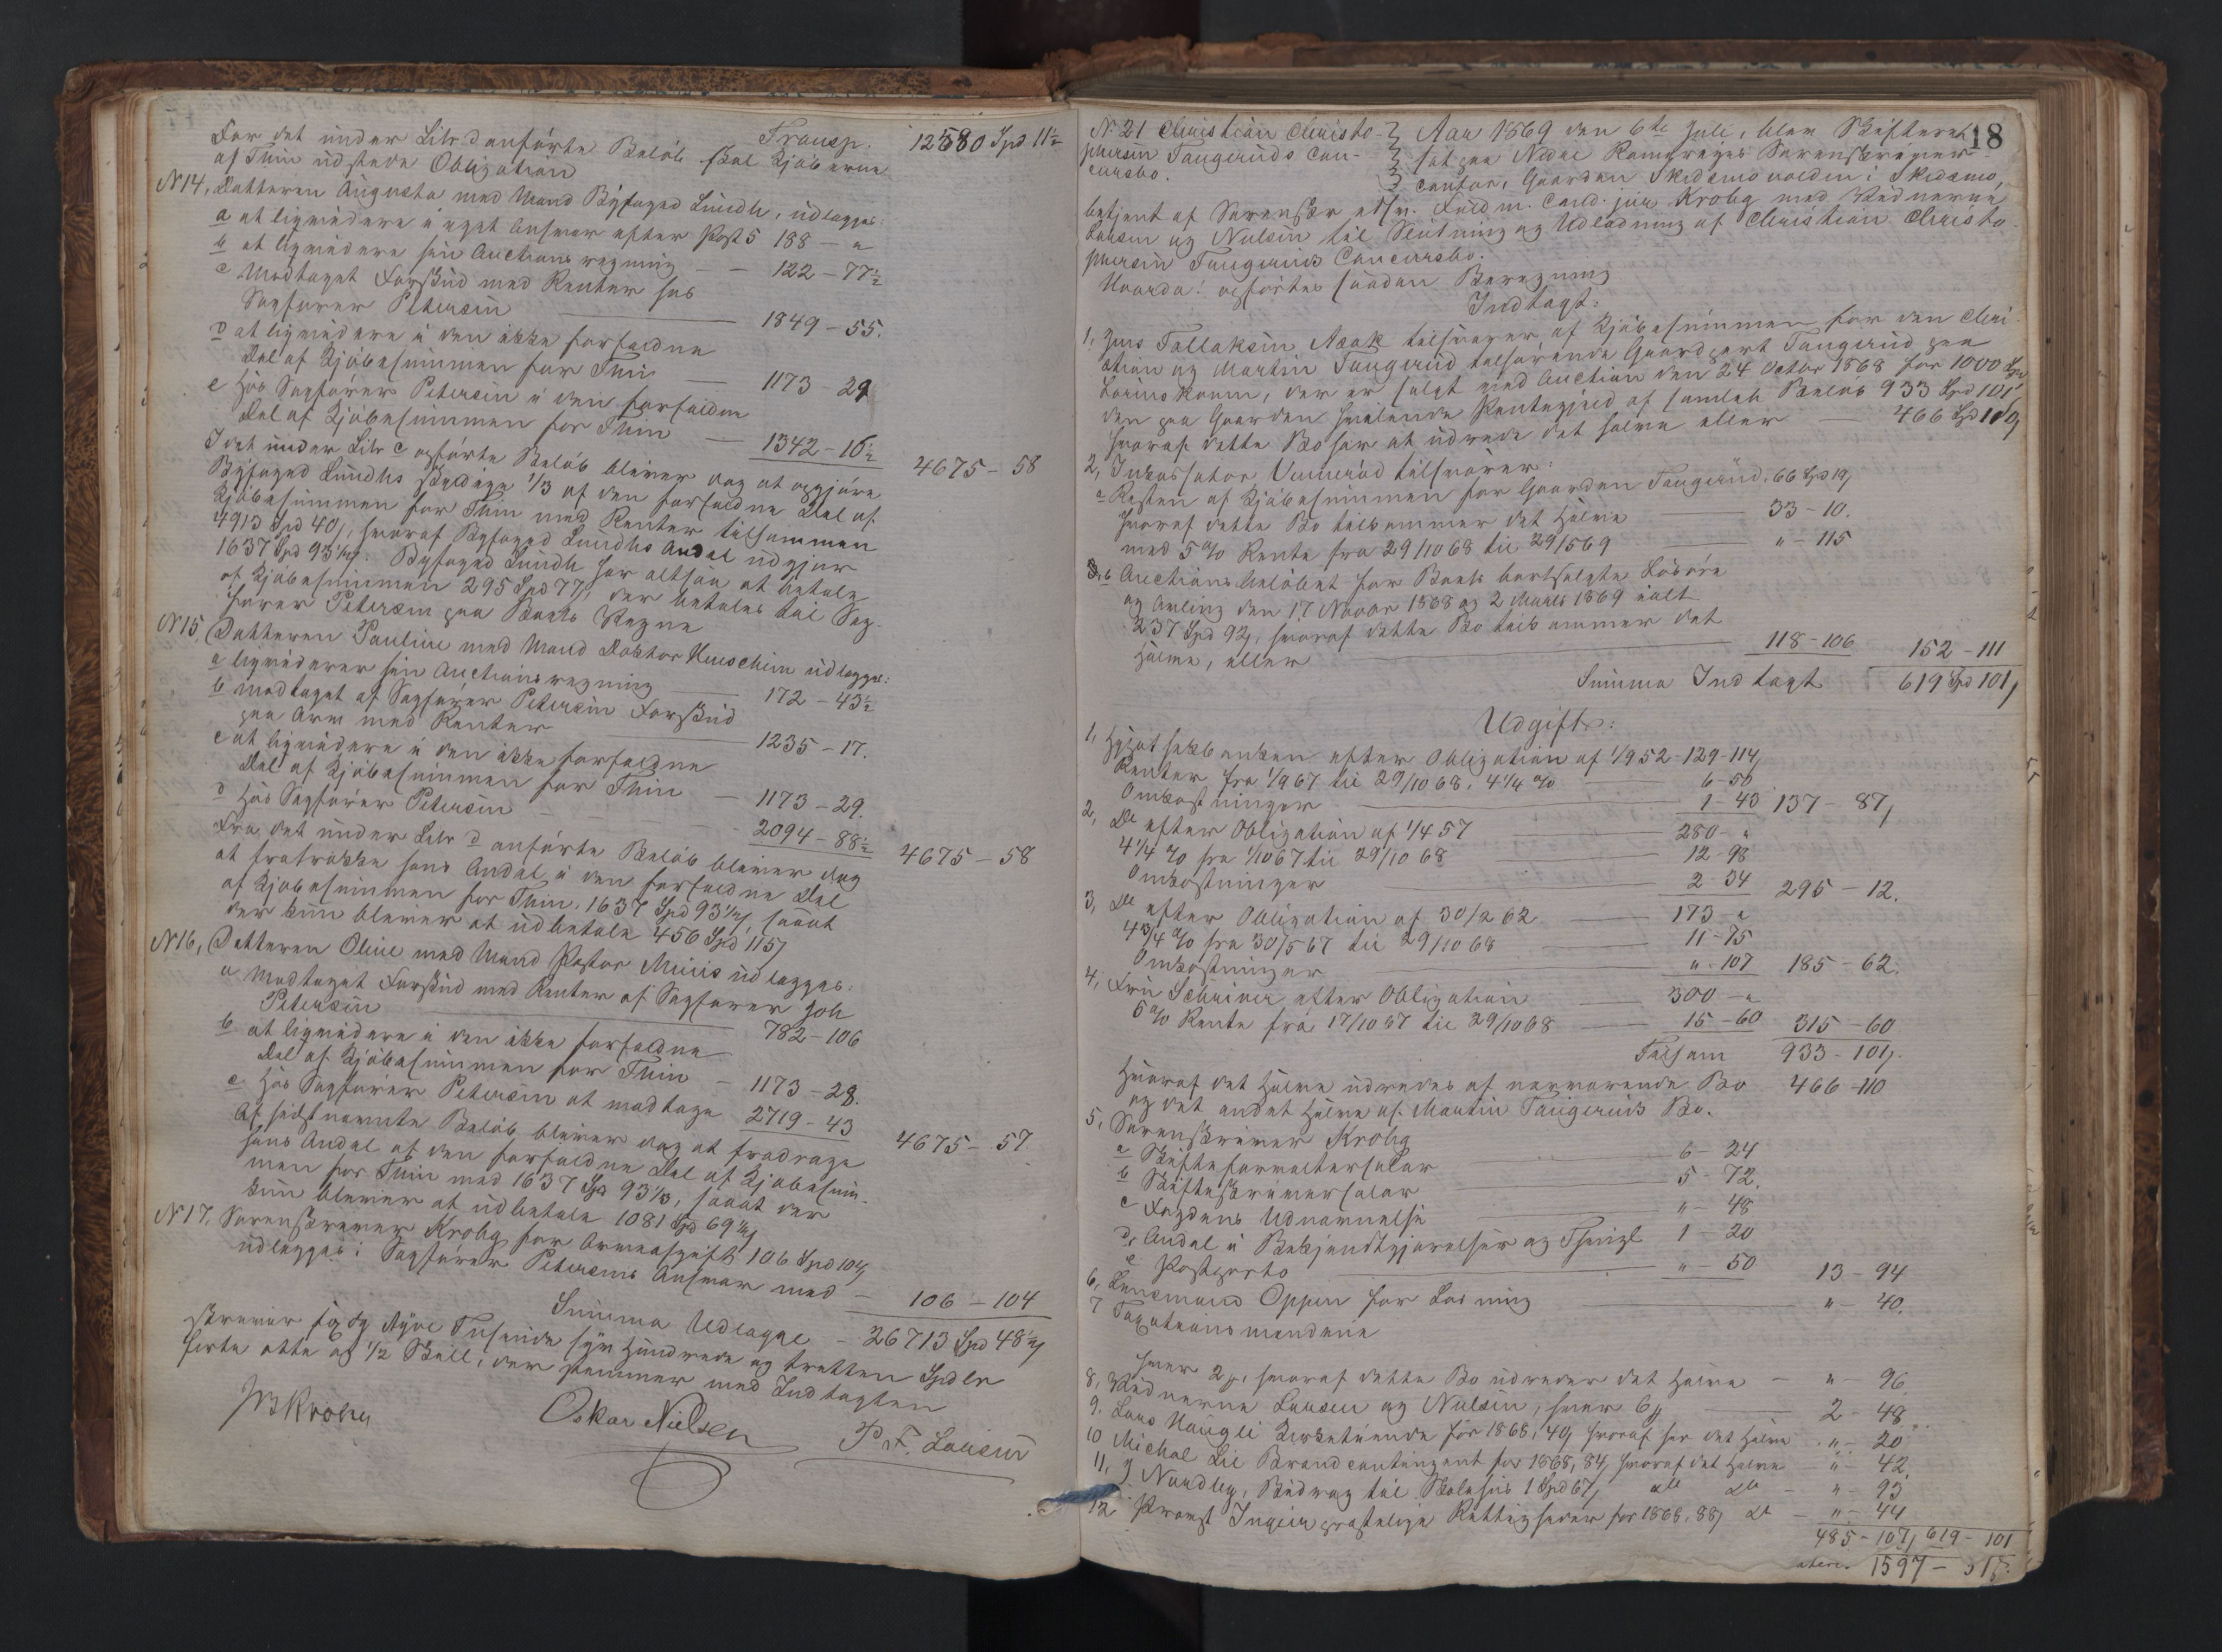 Transp. 12580 Spd 11½
For det under Litr d anførte Beløb skal Kjøberne
af Thin udstede Obligation
N14, Datteren Augusta med Mand Byfoged Lundh, udlægges:
a at liqvidere i eget Ansvar efter Post 5 188 – "
b at liqvidere sin Auctionsregning – – 122 – 77½
c Modtaget Forskud med Renter hos
Sagfører Petersen 1849 – 55.
d at liqvidere i den ikke forfaldne
Del af Kjøbesummen for Thin – 1173 – 29
e Hos Sagfører Petersen i den forfaldne
Del af Kjøbesummen for Thin – 1342 – 16½ 4675 – 58
I det under Litr e opførte Beløb bliver dog at opgjøre
Byfoged Lundhs skyldige 1/3 af den forfaldne Del af
Kjøbesummen for Thin med Renter tilsammen
4913 Spd 40 ß, hvoraf Byfoged Lundhs Andel udgjør
1637 Spd 93⅓ ß. Byfoged Lundh har altsaa at betale
af Kjøbesummen 295 Spd 77 ß, der betales til Sag-
fører Petersen paa Boets Vegne
N15, Datteren Pauline med Mand Doktor Huuschim udlægges:
a liqviderer sin Auctionsregning 172 – 43½
b modtaget af Sagfører Petersen Forskud
paa Arv med Renter 1235 – 17.
c at liqvidere i den ikke forfaldne
Del af Kjøbesummen for Thin – 1173 – 29.
d Hos Sagfører Petersen – 2094 – 88½ 4675 – 58
Fra det under Litr d anførte Beløb bliver dog
at fratrække hans Andel i den forfaldne Del
af Kjøbesummen for Thin, 1637 Spd 93⅓ ß, saaat
der kun bliver at udbetale 456 Spd 115 ß
N16, Datteren Oline med Mand Pastor Muus udlægges:
a Modtaget Forskud med Renter af Sagfører Joh
Petersen 782 – 106
b at liqvidere i den ikke forfaldne
Del af Kjøbesummen for Thin – 1173 – 28.
c Hos Sagfører Petersen at modtage 2719 – 43 4675 – 57.
Af sidstnævnte Beløb bliver dog at fradrage
hans Andel af den forfaldne Del af Kjøbesum-
men for Thin med 1637 Spd 93⅓, saaat der
kun bliver at udbetale 1081 Spd 69⅔ ß
N17, Sorenskriver Krohg for Arveafgift 106 Spd 104 ß
udlægges i Sagfører Petersens Ansvar med – 106 – 104
Summa Udlagde – 26713 Spd 48½ ß
skriver sex og tyve Tusinde syv Hundrede og tretten Spdlr
førti otte og ½ Skill, der stemmer med Indtægten
Krohg
Oskar Nielsen P. F. Larsen
18
N. 21 Christian Christo-
phersen Taugeruds Con-
cursbo.
Aar 1869 den 6te Juli, blev Skifteret
sat paa Nedre Romeriges Sorenskriver-
contor, Gaarden Skedsmovolden i Skedsmo,
betjent af Sorenskr efter Fuldm. Cand. jur Krohg med Vidnerne
Larsen og Nielsen til Slutning og Udlodning af Christian Christo-
phersen Taugeruds Concursbo.
Hvorda! opførtes saadan Beregning
Indtægt:
1, Jens Tollaksen Aaak tilsvarer af Kjøbesummen for den Chri-
stian og Martin Taugerud tilhørende Gaardpart Taugerud paa
Lørenskoven, der er solgt ved Auction den 24 Octbr 1868 for 1000 Spd
den paa Gaarden hvilende Pantegjæld af samlet Beløb 933 Spd 101
hvoraf dette Bo har at udrede det halve eller – 466 Spd 110 ß
2, Inkassator Ummerød tilsvarer:
a Resten af Kjøbesummen for Gaarden Taugerud, 66 Spd 19 ß
hvoraf dette Bo tilkommer det Halve 33 – 10.
med 5 % Rente fra 29/10 68 til 29/5 69 " – 115
b Auctionsbeløbet for Boets bortsolgte Løsøre
og Avling den 17 Novbr 1868 og 2 Marts 1869 ialt
237 Spd 92, hvoraf dette Bo tilkommer det
Halve, eller 118 – 106 152 – 111
Summa Indtægt 619 Spd 101 ß
Udgift:
1, Hypothekbanken efter Obligation af 1/9 52 – 129 – 114 ß
Renter fra 1/9 67 til 29/10 68, 4 1/4 % 6 – 50
Omkostninger 1 – 43 137 – 87 ß
2, Do efter Obligation af 1/4 57 280 – "
4 1/4 % fra 1/10 67 til 29/10 68 12 – 98
Omkostninger 2 – 34 295 – 12.
3, Do efter Obligation af 30/2 62 173 – "
4 3/4 % fra 30/5 67 til 29/10 68 11 – 75
Omkostninger " – 107 185 – 62.
4, Fru Schriver efter Obligation 300 – "
5 % Rente fra 17/10 67 til 29/10 68 15 – 60 315 – 60
Tilsam 933 – 101 ß.
Hvoraf det Halve udredes af nærværende Bo 466 – 110
og det andet Halve af Martin Taugeruds Bo.
5, Sorenskriver Krohg
a Skifteforvaltersalær 6 – 24
b Skifteskriversalær 5 – 72.
c Fogdens Udnævnelse " – 48
d Andel i Bekjendtgjørelser og Thingl 1 – 20
e Postporto " – 50 13 – 94
6, Lensmand Oppen for Løsning " – 40.
7 Taxationsmændene
hver 2 ß, hvoraf dette Bo udreder det Halve – " – 96
8, Vidnerne Larsen og Nielsen, hver 6 ß 2 – 48
9. Lars Haugli Kirketiende for 1868, 49 hvoraf her det Halve " – 20
10 Michal Lie Brandcontingent for 1868, 84, hvoraf det Halve " – 42.
11, J Nordby, Bidrag til Skolehus 1 Spd 67 ß do do – " – 93
12 Provst Ingier geistelige Rettigheder for 1868, 88 ß do – " – 44
485 – 107 ß 619 – 101
1597 –